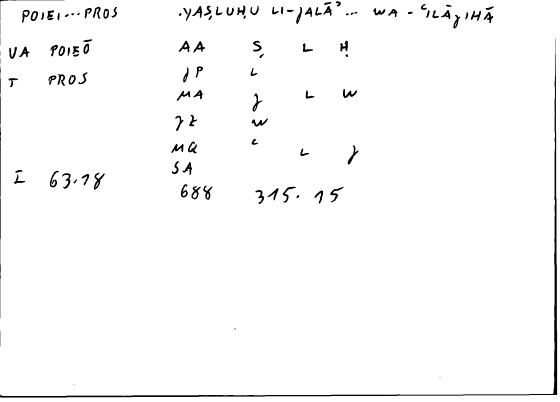 POIEI...PROS .YAṢLUḤU LI-ǧALĀʾ... WA-ʿILĀǧIHĀ
VA POIEŌ AA Ṣ L Ḥ
T PROS ǧP L
MA ǧ L W
ǧZ W
MQ ʿ L ǧ
SA
I 63.18 688 315.15